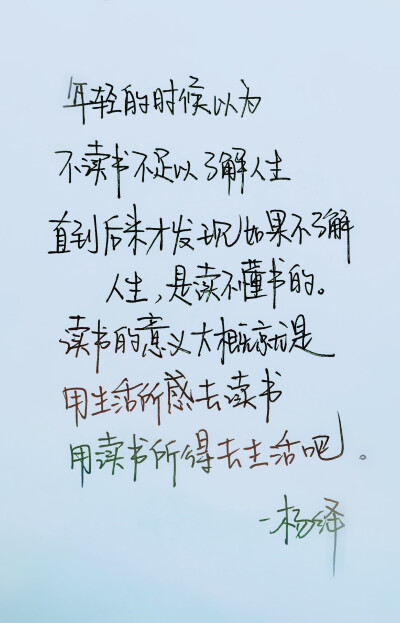 年轻的时候以为
不读书不足以了解人生
直到后来才发现如果不了解
人生,是读不懂书的。
读书的意义大概就是
用生活所感去读书
用读书所得去生活吧。
-杨绛